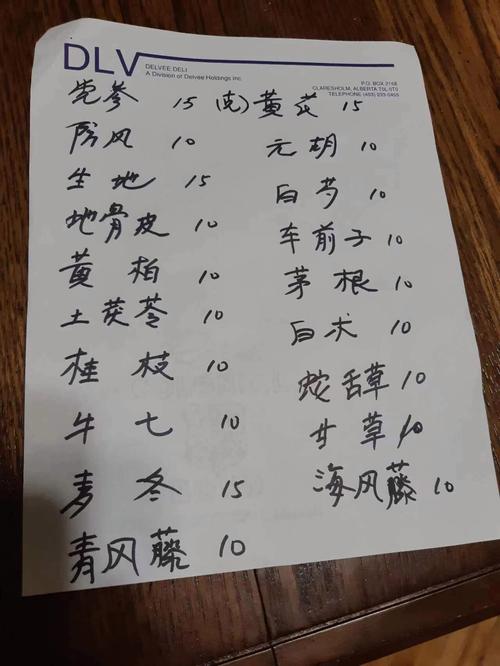 DLV
DELVEE DELI
A Division of Delvee Holdings Inc.
P.O. BOX 2168
CLARESHOLM, ALBERTA T0L 0T0
TELEPHONE (403) 233-0455
党参 15 (包)黄芪 15
防风 10 元胡 10
生地 15 白芍 10
地骨皮 10 车前子 10
黄柏 10 茅根 10
土茯苓 10 白术 10
桂枝 10 蛇舌草 10
牛七 10 甘草 10
麦冬 15 海风藤 10
青风藤 10